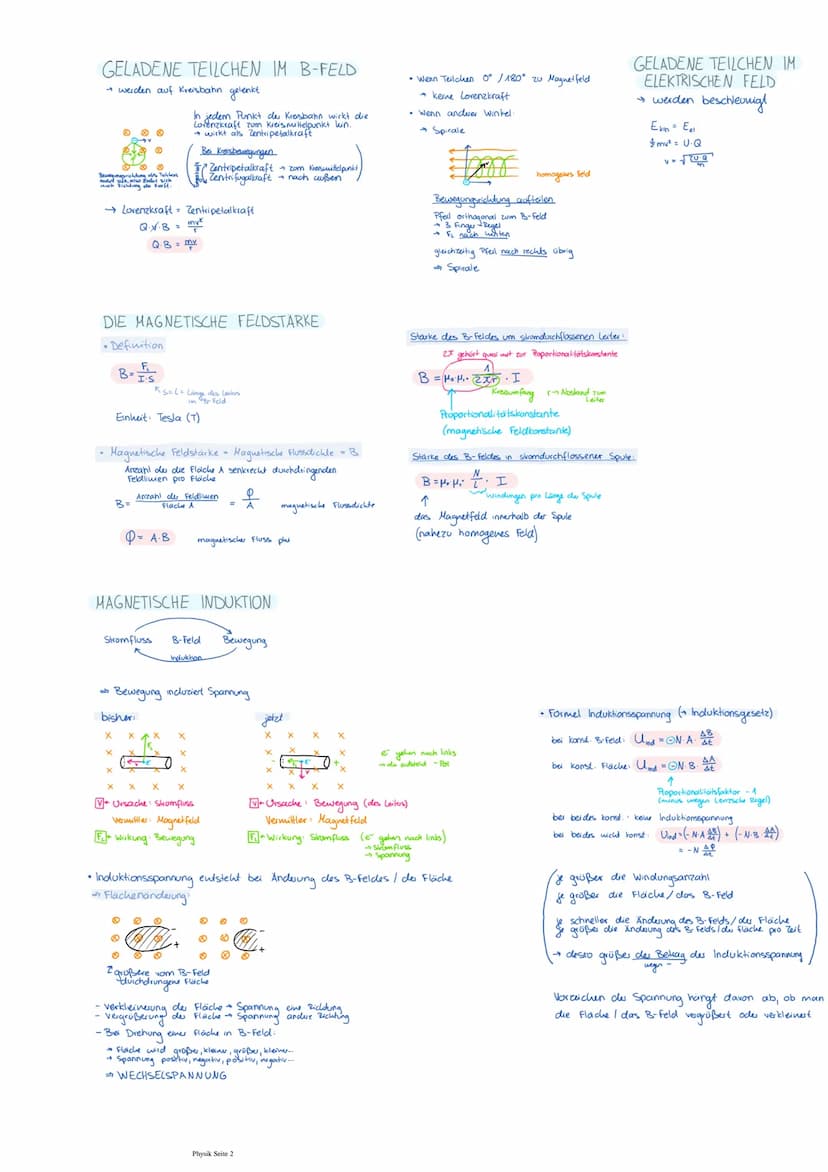 GELADENE TEILCHEN IM B-FELD
→ werden auf Kreisbahn gelenkt
In jedem Punkt der Kreisbahn wirkt die
Lorenzkraft zum Kreismittelpunkt hin.
→ wirkt als Zentripetalkraft
Bei Kreisbewegungen
Zentripetalkraft → zum Kreismittelpunkt
Zentrifugalkraft → nach außen
→ Lorenzkraft = Zentripetalkraft
Q·v·B = mv²/r
Q·B = mv/r
• Wenn Teilchen 0° / 180° zu Magnetfeld
→ keine Lorenzkraft
• Wenn anderer Winkel:
→ Spirale
homogenes Feld
Bewegungsrichtung aufteilen
Pfeil orthogonal zum B-Feld
→ 3 Finger Regel
→ FL nach hinten
gleichzeitig Pfeil nach rechts übrig
⇒ Spirale
GELADENE TEILCHEN IM
ELEKTRISCHEN FELD
→ werden beschleunigt
Ekin = Eel
½mv² = U·Q
DIE MAGNETISCHE FELDSTÄRKE
• Definition
B = FL/I·S
S = L = Länge des Leiters
im B-Feld
Einheit: Tesla (T)
• Magnetische Feldstärke = Magnetische Flussdichte = B
Anzahl der die Fläche A senkrecht durchdringenden
Feldlinien pro Fläche
B = Anzahl der Feldlinien/Fläche A = Φ/A magnetische Flussdichte
Φ = A·B magnetischer Fluss phi
Stärke des B-Feldes um stromdurchflossenen Leiter:
2π gehört quasi mit zur Proportionalitätskonstante
B = μ₀·μr · 1/2πr · I
Kreisumfang r → Abstand zum
Leiter
Proportionalitätskonstante
(magnetische Feldkonstante)
Stärke des B-Feldes in stromdurchflossener Spule:
B = μ₀·μr · N/L · I
Windungen pro Länge der Spule
das Magnetfeld innerhalb der Spule
(nahezu homogenes Feld)
MAGNETISCHE INDUKTION
Stromfluss B-Feld Bewegung
Induktion
⇒ Bewegung induziert Spannung
bisher: jetzt
e⁻ gehen nach links
→ da entsteht -Pol
V = Ursache: Stromfluss
Vermittler: Magnetfeld
FL = Wirkung: Bewegung
V = Ursache: Bewegung (des Leiters)
Vermittler: Magnetfeld
FL = Wirkung: Stromfluss (e⁻ gehen nach links)
→ Stromfluss
→ Spannung
• Induktionsspannung entsteht bei Änderung des B-Feldes / der Fläche
⇒ Flächenänderung:
größere vom B-Feld
durchdrungene Fläche
- Verkleinerung der Fläche → Spannung eine Richtung
- Vergrößerung der Fläche → Spannung andere Richtung
- Bei Drehung einer Fläche in B-Feld:
→ Fläche wird größer, kleiner, größer, kleiner...
→ Spannung positiv, negativ, positiv, negativ...
⇒ WECHSELSPANNUNG
• Formel Induktionsspannung (→ Induktionsgesetz)
bei konst. B-Feld: Uind = -N·A· ΔB/Δt
bei konst. Fläche: Uind = -N·B· ΔA/Δt
Proportionalitätsfaktor -1
(minus wegen Lenzsche Regel)
bei beides konst.: keine Induktionsspannung
bei beides nicht konst: Uind = (-N·A ΔB/Δt) + (-N·B ΔA/Δt)
= -N ΔΦ/Δt
je größer die Windungsanzahl
je größer die Fläche / das B-Feld
je schneller die Änderung des B-Felds / der Fläche
je größer die Änderung des B-Felds / der Fläche pro Zeit
→ desto größer der Betrag der Induktionsspannung
wegen -
Vorzeichen der Spannung hängt davon ab, ob man
die Fläche / das B-Feld vergrößert oder verkleinert
Physik Seite 2